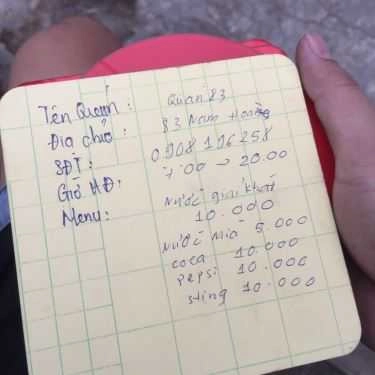 Tên Quán: Quán 83
Địa chỉ: 83 Nam Hoàng
SĐT: 0908 196 258
Giờ HĐ: 7:00 → 20.00
Menu: Nước giải khát
10.000
Nước mía 5.000
coca 10.000
pepsi 10.000
sting 10.000